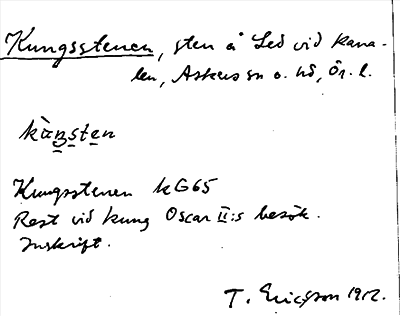 Kungsstenen, sten å Led vid kana-
len, Askers sn o. hd, Ör. l.
kàŋsten
Kungsstenen kG65
Rest vid kung Oscar II:s besök.
Inskrift.
T. Ericsson 1912.